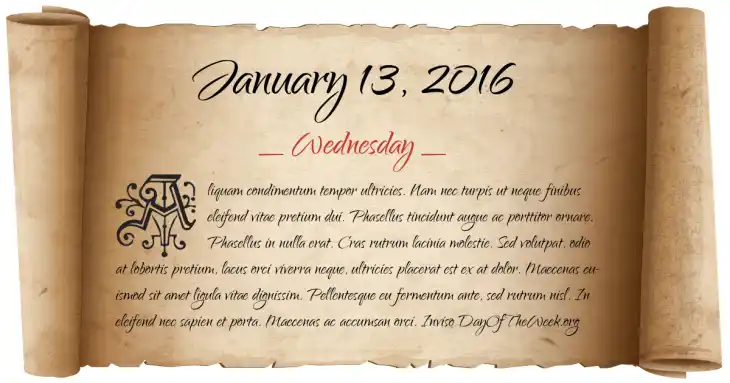 January 13, 2016
— Wednesday —
Aliquam condimentum tempor ultricies. Nam nec turpis ut neque finibus
eleifend vitae pretium dui. Phasellus tincidunt augue ac porttitor ornare.
Phasellus in nulla erat. Cras rutrum lacinia molestie. Sed volutpat, odio
at lobortis pretium, lacus orci viverra neque, ultricies placerat est ex at dolor. Maecenas eu-
ismod sit amet ligula vitae dignissim. Pellentesque eu fermentum ante, sed rutrum nisl. In
eleifend nec sapien et porta. Maecenas ac accumsan orci. Invise DayOfTheWeek.org